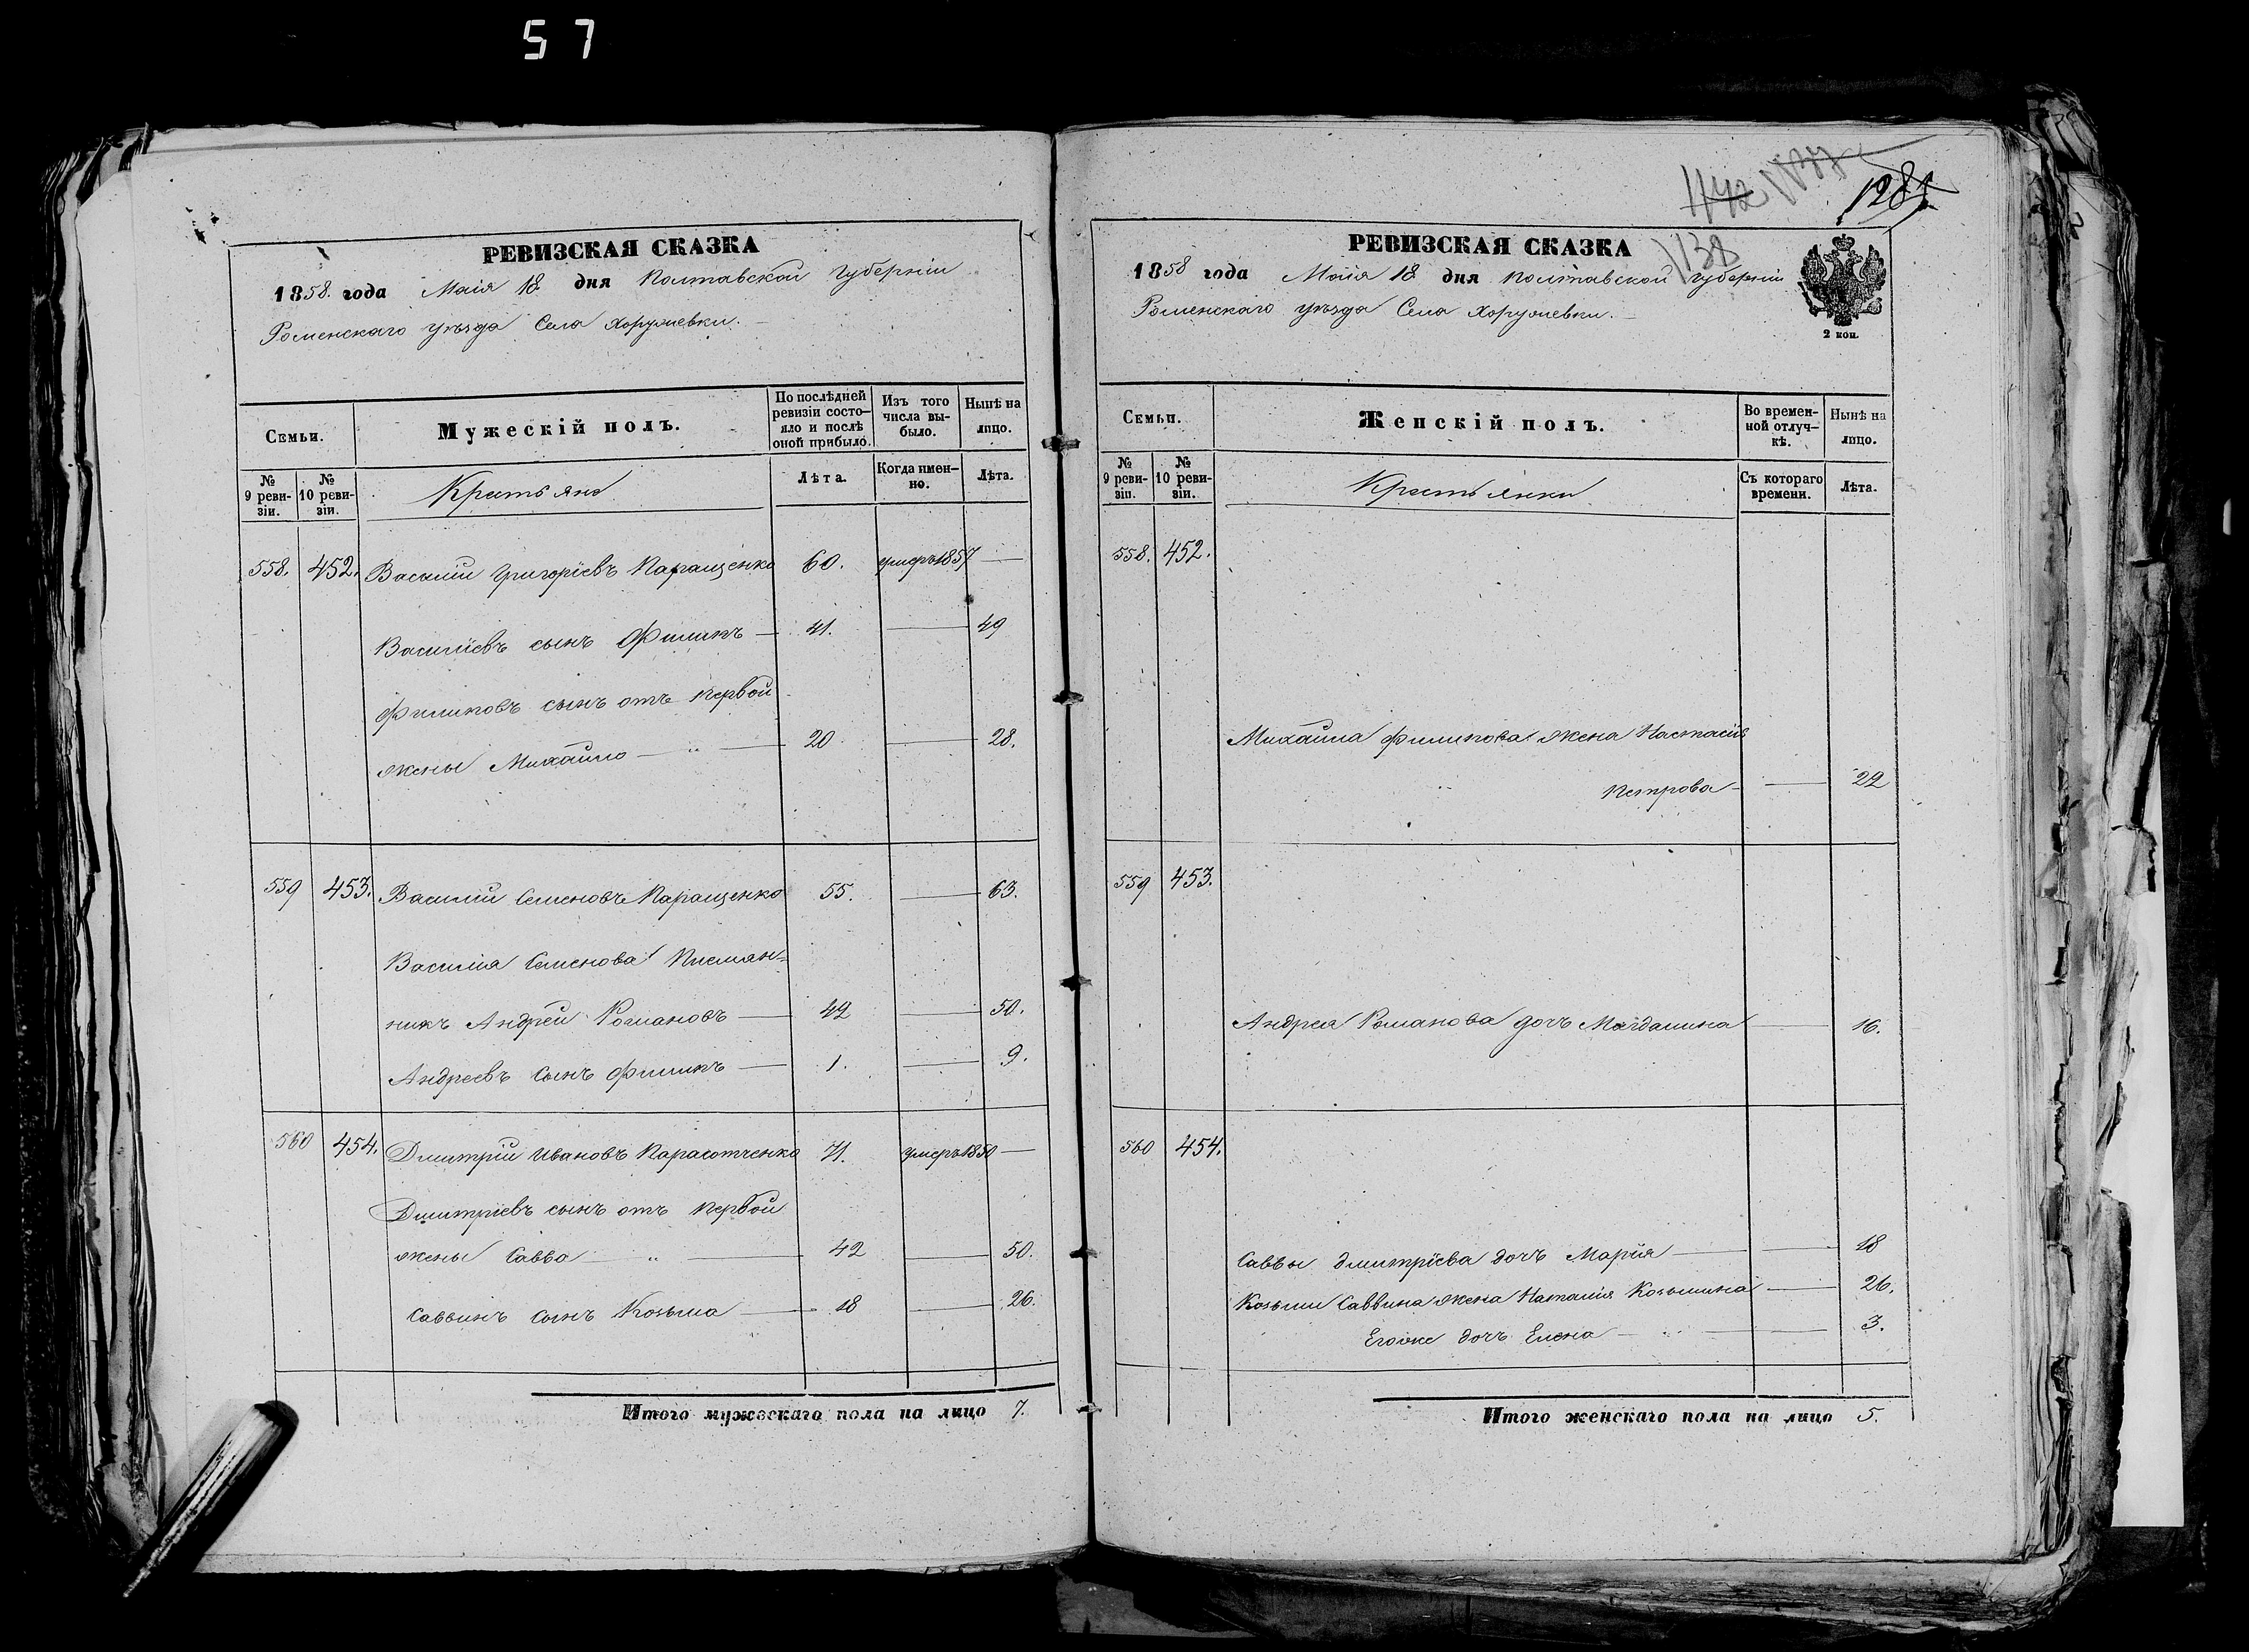 57
РЕВИЗСКАЯ СКАЗКА
1858. года Маія 18 дня Полтавской Губерніи
Роменскаго уѣзда Села Хоружевки.
Семьи.
Мужескій полъ.
По послѣдней ревизіи состояло и послѣ оной прибыло.
Изъ того числа выбыло.
Нынѣ на лицо.
№ 9 ревизіи.
№ 10 ревизіи.
Крестьяне
Лѣта.
Когда именно.
Лѣта.
558. 452. Василій Григоріевъ Паращенко 60. умеръ 1857 —
Василіевъ сынъ Филипъ — 41. — 49
Филиповъ сынъ отъ первой
жены Михайло — " — 20 — 28.
559 453. Василій Семеновъ Паращенко 55. — 63.
Василія Семенова Племян-
никъ Андрей Романовъ — 42 — 50.
Андреевъ сынъ Филипъ — 1. — 9.
560 454. Дмитрій Ивановъ Парасотченко 71. умеръ 1850 —
Дмитріевъ сынъ отъ первой
жены Савва — " — 42 — 50.
Саввинъ сынъ Козьма — 18 — 26.
Итого мужескаго пола на лицо 7.
1281
1138
РЕВИЗСКАЯ СКАЗКА
1858 года Маія 18 дня Полтавской Губерніи
Роменскаго уѣзда Села Хоружевки. —
2 коп.
Семьи.
Женскій полъ.
Во временной отлучкѣ.
Нынѣ на лицо.
№ 9 ревизіи.
№ 10 ревизіи.
Крестьянки
Съ котораго времени.
Лѣта.
558. 452.
Михайла Филипова жена Настасія
Петрова — — 22
559 453.
Андрея Романова дочь Магдалина — 16.
560 454.
Саввы Дмитріева дочь Марія — — 18
Козьмы Саввина жена Наталія Козьмина — 26.
Егоже дочь Елена — " — 3.
Итого женскаго пола на лицо 5.